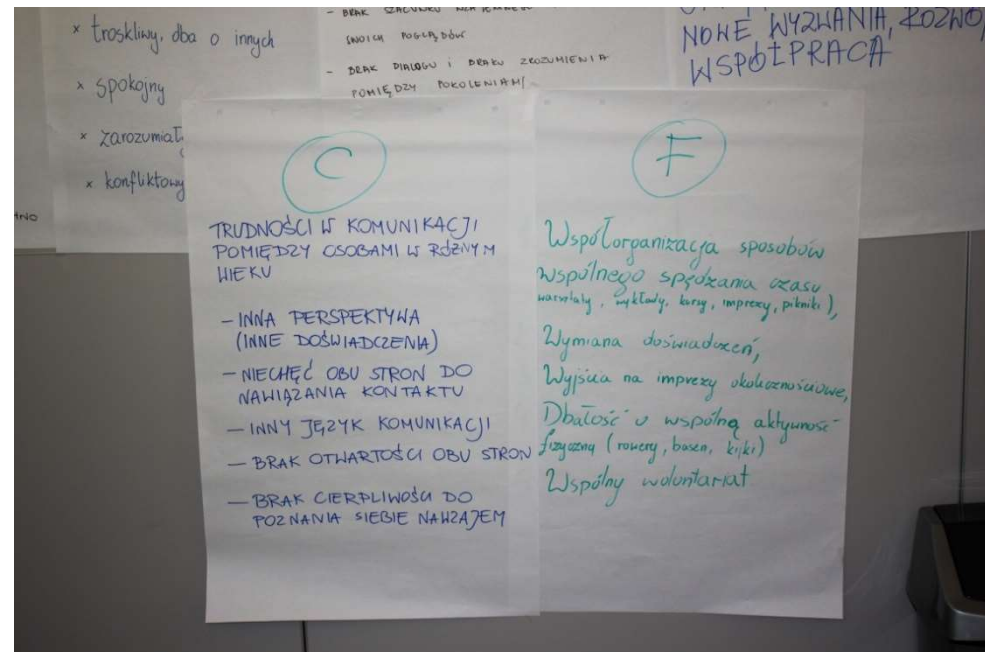 × troskliwy, dba o innych
× spokojny
× zarozumiał
× konfliktowy
- BRAK SZACUNKU
SWOICH POGLĄDÓW
- BRAK DIALOGU I BRAKU ZROZUMIENIA
POMIĘDZY POKOLENIAMI
NOWE WYZWANIA, ROZWO
WSPÓŁPRACA
C
TRUDNOŚCI W KOMUNIKACJI
POMIĘDZY OSOBAMI W RÓŻNYM
WIEKU
- INNA PERSPEKTYWA
(INNE DOŚWIADCZENIA)
- NIECHĘĆ OBU STRON DO
NAWIĄZANIA KONTAKTU
- INNY JĘZYK KOMUNIKACJI
- BRAK OTWARTOŚCI OBU STRON
- BRAK CIERPLIWOŚCI DO
POZNANIA SIEBIE NAWZAJEM
F
Współorganizacja sposobów
wspólnego spędzania czasu
warsztaty, wykłady, kursy, imprezy, pikniki),
Wymiana doświadczeń,
Wyjścia na imprezy okolicznościowe,
Dbałość o wspólną aktywność
fizyczną (rowery, basen, kijki)
Wspólny wolontariat